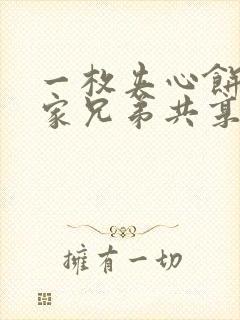 一枚夹心餅
家兄弟共享
擁有一切